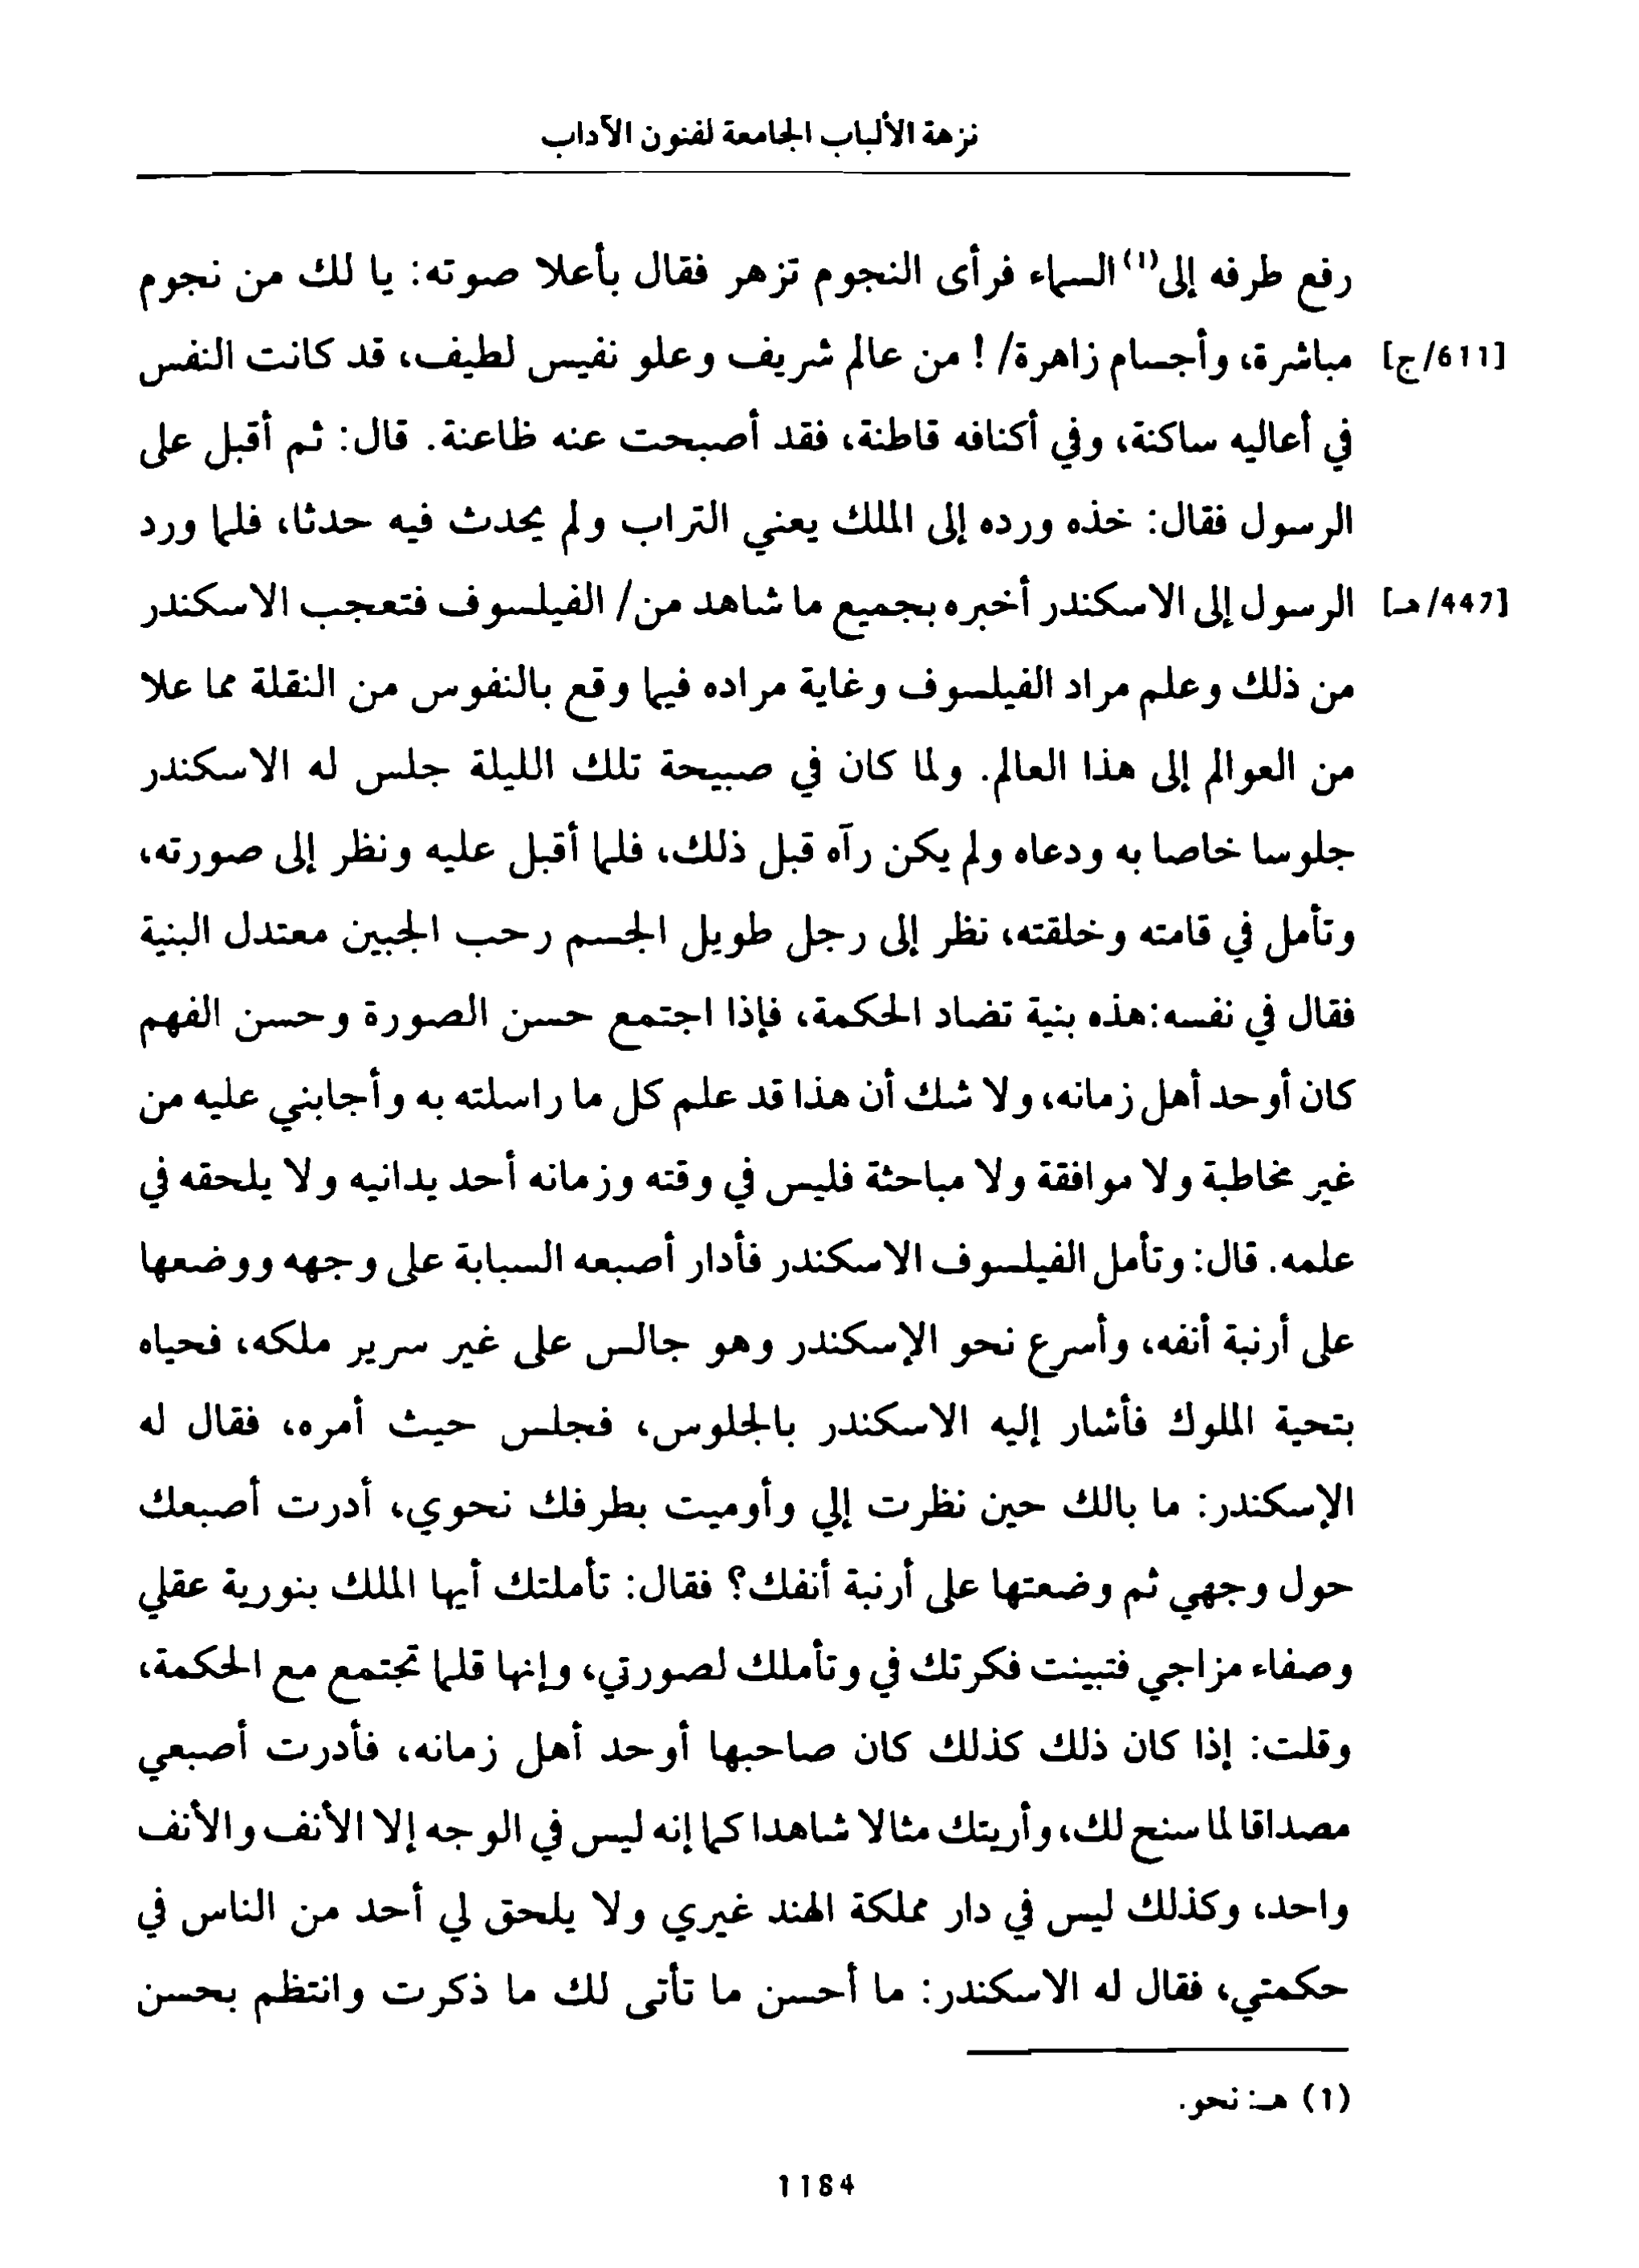 نزهة الألباب الجامعة لفنون الآداب
رفع طرفه إلى(١) السماء فرأى النجوم تزهر فقال بأعلا صوته: يا لك من نجوم
مباشرة، وأجسام زاهرة/ ! من عالم شريف وعلو نفيس لطيف، قد كانت النفس [611/ج]
في أعاليه ساكنة، وفي أكنافه قاطنة، فقد أصبحت عنه ظاعنة. قال: ثم أقبل على
الرسول فقال: خذه ورده إلى الملك يعني التراب ولم يحدث فيه حدثا، فلما ورد
الرسول إلى الاسكندر أخبره بجميع ما شاهد من/ الفيلسوف فتعجب الاسكندر [447/هـ]
من ذلك وعلم مراد الفيلسوف وغاية مراده فيما وقع بالنفوس من النقلة مما علا
من العوالم إلى هذا العالم. ولما كان في صبيحة تلك الليلة جلس له الاسكندر
جلوسا خاصا به ودعاه ولم يكن رآه قبل ذلك، فلما أقبل عليه ونظر إلى صورته،
وتأمل في قامته وخلقته، نظر إلى رجل طويل الجسم رحب الجبين معتدل البنية
فقال في نفسه:هذه بنية تضاد الحكمة، فإذا اجتمع حسن الصورة وحسن الفهم
كان أوحد أهل زمانه، ولا شك أن هذا قد علم كل ما راسلته به وأجابني عليه من
غير مخاطبة ولا موافقة ولا مباحثة فليس في وقته وزمانه أحد يدانيه ولا يلحقه في
علمه. قال: وتأمل الفيلسوف الاسكندر فأدار أصبعه السبابة على وجهه ووضعها
على أرنبة أنفه، وأسرع نحو الإسكندر وهو جالس على غير سرير ملكه، فحياه
بتحية الملوك فأشار إليه الاسكندر بالجلوس، فجلس حيث أمره، فقال له
الإسكندر: ما بالك حين نظرت إلي وأوميت بطرفك نحوي، أدرت أصبعك
حول وجهي ثم وضعتها على أرنبة أنفك؟ فقال: تأملتك أيها الملك بنورية عقلي
وصفاء مزاجي فتبينت فكرتك في وتأملك لصورتي، وإنها قلما تجتمع مع الحكمة،
وقلت: إذا كان ذلك كذلك كان صاحبها أوحد أهل زمانه، فأدرت أصبعي
مصداقا لما سنح لك، وأريتك مثالا شاهدا كما إنه ليس في الوجه إلا الأنف والأنف
واحد، وكذلك ليس في دار مملكة الهند غيري ولا يلحق لي أحد من الناس في
حكمتي، فقال له الاسكندر: ما أحسن ما تأتى لك ما ذكرت وانتظم بحسن
(1) هـ: نحو.
1184